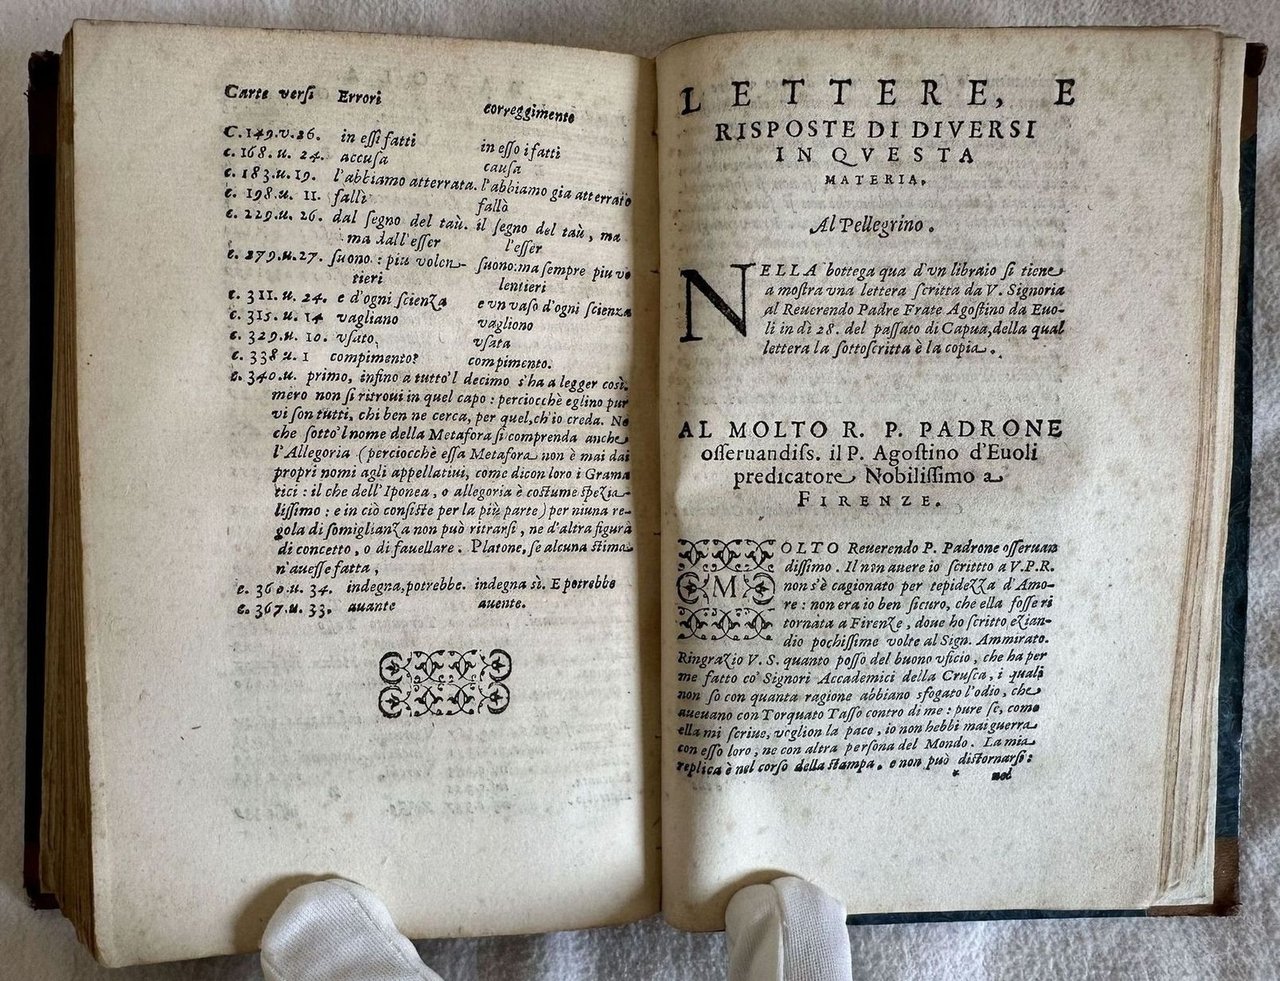 Carte versi Errori correggimento
C.149.v.26. in essi fatti in esso i fatti
c.168.u.24. accusa causa
c.183.u.19. l'abbiamo atterrata. l'abbiamo gia atterrato
c.198.u. 11. falli fallo
c.229.u.26. dal segno del taù. il segno del taù, ma
ma dall'esser l'esser
c.279.u.27. suono: piu volen- suono: ma sempre piu vo
tieri lentieri
c.311.u.24. e d'ogni scienza e vn vaso d'ogni scienza
c.315.u.14 vagliano vagliono
c.329.u.10. vsato, vsata
c.338 u. 1 compimento? compimento.
c.340.u. primo, infino a tutto'l decimo s'ha a legger così.
mero non si ritroui in quel capo: perciocchè eglino pur
vi son tutti, chi ben ne cerca, per quel, ch'io creda. Ne
che sotto'l nome della Metafora si comprenda anche
l'Allegoria (perciocchè essa Metafora non è mai dai
propri nomi agli appellatiui, come dicon loro i Grama
tici: il che dell'Iponea, o allegoria è costume spezia-
lissimo: e in ciò consiste per la più parte) per niuna re-
gola di somiglianza non può ritrarsi, ne d'altra figura
di concetto, o di fauellare. Platone, se alcuna stima
n'auesse fatta,
c.360.u.34. indegna, potrebbe. indegna sì. E potrebbe
c.367.u.33. auante auente.
LETTERE, E
RISPOSTE DI DIVERSI
IN QVESTA
MATERIA.
Al Pellegrino.
NELLA bottega qua d'vn libraio si tiene
a mostra vna lettera scritta da V. Signoria
al Reuerendo Padre Frate Agostino da Euo-
li in dì 28. del passato di Capua, della qual
lettera la sottoscritta è la copia.
AL MOLTO R. P. PADRONE
osseruandiss. il P. Agostino d'Euoli
predicatore Nobilissimo a
FIRENZE.
MOLTO Reuerendo P. Padrone osseruan
dissimo. Il nin auere io scrittto a V.P.R.
non s'è cagionato per tepidezza d'Amo-
re: non era io ben sicuro, che ella fosse ri
tornata a Firenze, doue ho scritto, ezian-
dio pochissime volte al Sign. Ammirato.
Ringrazio V. S. quanto posso del buono vficio, che ha per
me fatto co' Signori Accademici della Crusca, i quali
non so con quanta ragione abbiano sfogato l'odio, che
aueuano con Torquato Tasso contro di me: pure se, come
ella mi scriue, veglion la pace, io non hebbi mai guerra
con esso loro, ne con altra persona del Mondo. La mia
replica è nel corso della stampa, e non può distornarsi:
* nel